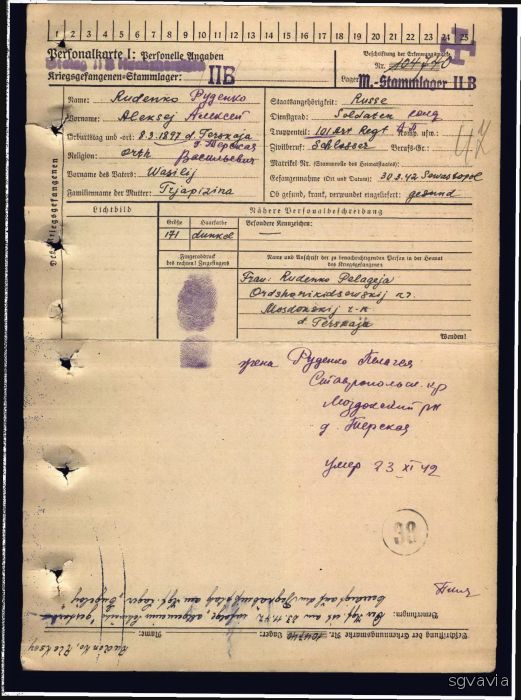 1 2 3 4 5 6 7 8 9 10 11 12 13 14 15 16 17 18 19 20 21 22 23 24 25
Personalkarte I: Personelle Angaben
Kriegsgefangenen-Stammlager: II B
Beschriftung der Erkennungsmarke
Nr. 104770
Lager M.-Stammlager II B
Des Kriegsgefangenen
Name: Rudenko Руденко
Vorname: Aleksej Алексей
Geburtstag und -ort: 8.3.1897 d. Terskaja
д. Терская
Religion: Orth Васильевич
Vorname des Vaters: Wasilij
Familienname der Mutter: Tzjapizina
Staatsangehörigkeit: Russe
Dienstgrad: Soldaten солд
Truppenteil: 101 Art Regt Komp. usw.:
Zivilberuf: Schlosser Berufs-Gr.:
47
Matrikel Nr. (Stammrolle des Heimatstaates):
Gefangennahme (Ort und Datum): 30.3.42 Sewastopol
Ob gesund, krank, verwundet eingeliefert: gesund
Lichtbild
Nähere Personalbeschreibung
Größe Haarfarbe Besondere Kennzeichen:
171 dunkel —
Fingerabdruck des rechten! Zeigefingers
Name und Anschrift der zu benachrichtigenden Person in der Heimat des Kriegsgefangenen
Frau: Rudenko Pelageja
Ordshonikidsewskij
Mosdokskij
d. Terskaja
Wenden!
жена Руденко Пелагея
Ставропольск. кр
Моздокский рн
д. Терская
умер 23 XI 42
38
Bemerkungen:
Beschriftung der Erkennungsmarke Nr. Lager: Name:
Rudenko Aleksej
sgvavia